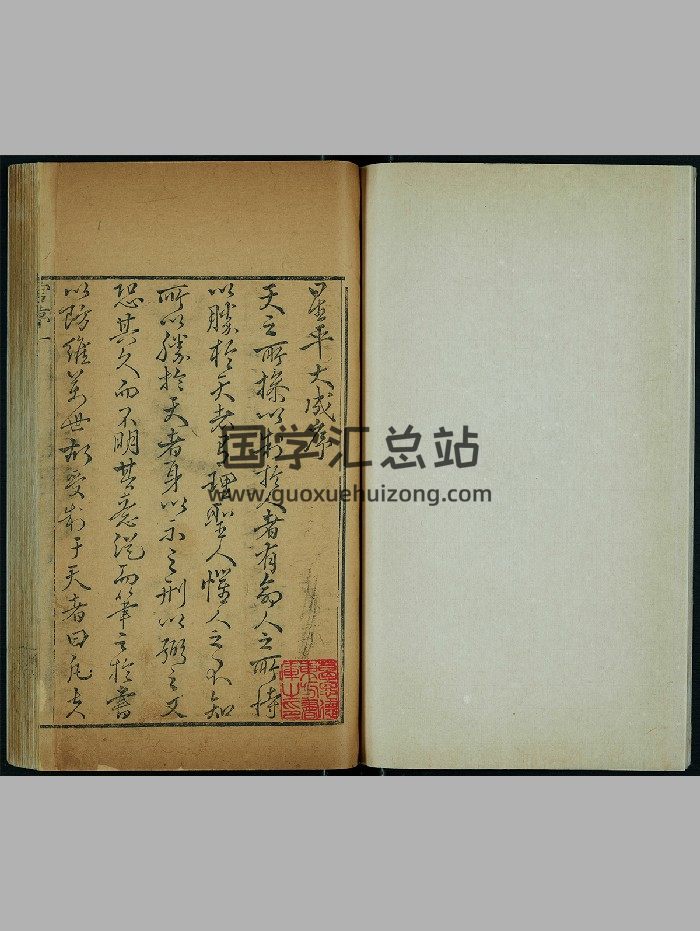 星平大成序
天之所操以制於人者有命人之所恃
以勝於天者有理聖人懼人之不知
所以勝於天者身以示之刑以弼之又
恐其久而不明其意從而筆之於書
以防維萬世故受制于天者曰
国学汇总站
www.guoxuehuizong.com